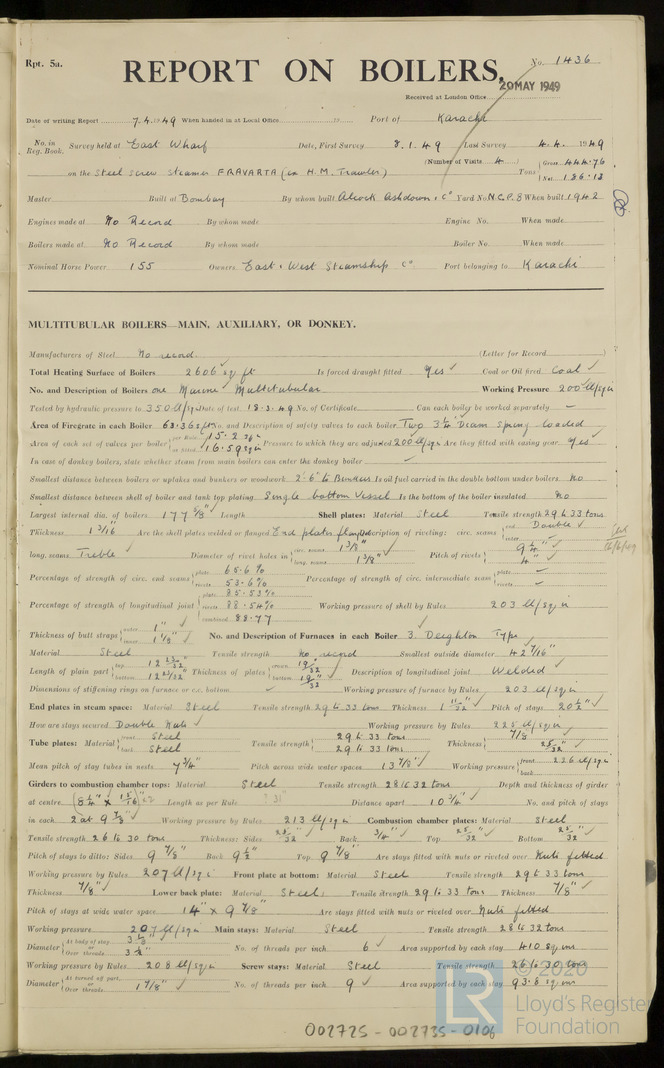 Rpt. 5a.
No. 1436
REPORT ON BOILERS.
20 MAY 1949
Received at London Office
Date of writing Report 7.4.1949 When handed in at Local Office 19 Port of Karachi
No. in Reg. Book. Survey held at East Wharf Date, First Survey 8.1.49 Last Survey 4.4.1949
(Number of Visits 4)
on the Steel screw steamer FRAVARTA (ex H.M. Trawler) Tons Gross 444.76 Net 186.12
Master Built at Bombay By whom built Alcock Ashdown & Co Yard No N.C.P. 8 When built 1942
Engines made at No Record By whom made Engine No. When made
Boilers made at No Record By whom made Boiler No. When made
Nominal Horse Power 155 Owners East & West Steamship Co Port belonging to Karachi
MULTITUBULAR BOILERS—MAIN, AUXILIARY, OR DONKEY.
Manufacturers of Steel No record (Letter for Record )
Total Heating Surface of Boilers 2606 sq ft Is forced draught fitted Yes Coal or Oil fired Coal
No. and Description of Boilers one Marine Multitubular Working Pressure 200 lb/sq in
Tested by hydraulic pressure to 350 lb/sq Date of test 18.3.49 No. of Certificate Can each boiler be worked separately –
Area of Firegrate in each Boiler 63.36 sq ft No. and Description of safety valves to each boiler Two 3 1/4" Diam Spring loaded
Area of each set of valves per boiler per Rule 15.2 sq in as fitted 16.59 sq in Pressure to which they are adjusted 200 lb/sq in Are they fitted with easing gear Yes
In case of donkey boilers, state whether steam from main boilers can enter the donkey boiler –
Smallest distance between boilers or uptakes and bunkers or woodwork 2'-6" to Bunkers Is oil fuel carried in the double bottom under boilers No
Smallest distance between shell of boiler and tank top plating Single bottom Vessel Is the bottom of the boiler insulated No
Largest internal dia. of boilers 177 5/8" Length Shell plates: Material Steel Tensile strength 29 to 33 tons
Thickness 1 3/16" Are the shell plates welded or flanged End plates flanged Description of riveting: circ. seams end Double inter. –
long. seams Treble Diameter of rivet holes in circ. seams 1 3/8" long. seams 1 3/8" Pitch of rivets 9 1/4" 4"
Percentage of strength of circ. end seams plate 65.6 % rivets 53.6 % Percentage of strength of circ. intermediate seam plate – rivets –
Percentage of strength of longitudinal joint plate 85.53 % rivets 88.54 % combined 88.77 Working pressure of shell by Rules 203 lb/sq in
Thickness of butt straps outer 1" inner 1 1/8" No. and Description of Furnaces in each Boiler 3. Deighton Type
Material Steel Tensile strength No record Smallest outside diameter 42 7/16"
Length of plain part top 12 23/32" bottom 12 23/32" Thickness of plates crown 19/32" bottom 19/32" Description of longitudinal joint Welded
Dimensions of stiffening rings on furnace or c.c. bottom Working pressure of furnace by Rules 203 lb/sq in
End plates in steam space: Material Steel Tensile strength 29 to 33 tons Thickness 1 11/32" Pitch of stays 20 1/2"
How are stays secured Double Nuts Working pressure by Rules 225 lb/sq in
Tube plates: Material front Steel back Steel Tensile strength 29 to 33 tons 29 to 33 tons Thickness 7/8" 25/32"
Mean pitch of stay tubes in nests 7 3/4" Pitch across wide water spaces 13 7/8" Working pressure front 226 lb/sq in back
Girders to combustion chamber tops: Material Steel Tensile strength 28 to 32 tons Depth and thickness of girder
at centre 8 1/4" x 15/16" x2 Length as per Rule 31" Distance apart 10 3/4" No. and pitch of stays
in each 2 at 9 7/8" Working pressure by Rules 213 lb/sq in Combustion chamber plates: Material Steel
Tensile strength 26 to 30 tons Thickness: Sides 25/32" Back 3/4" Top 25/32" Bottom 25/32"
Pitch of stays to ditto: Sides 9 7/8" Back 9 1/2" Top 9 7/8" Are stays fitted with nuts or riveted over Nuts fitted
Working pressure by Rules 207 lb/sq in Front plate at bottom: Material Steel Tensile strength 29 to 33 tons
Thickness 7/8" Lower back plate: Material Steel Tensile strength 29 to 33 tons Thickness 7/8"
Pitch of stays at wide water space 14" x 9 7/8" Are stays fitted with nuts or riveted over Nuts fitted
Working pressure 207 lb/sq in Main stays: Material Steel Tensile strength 28 to 32 tons
Diameter At body of stay 3 1/8" Over threads 3 1/4" No. of threads per inch 6 Area supported by each stay 410 sq ins
Working pressure by Rules 208 lb/sq in Screw stays: Material Steel Tensile strength 26 to 30 tons
Diameter At turned off part Over threads 1 7/8" No. of threads per inch 9 Area supported by each stay 93.6 sq ins
002725 - 002735 - 0106
© 2020
LR
Lloyd's Register
Foundation